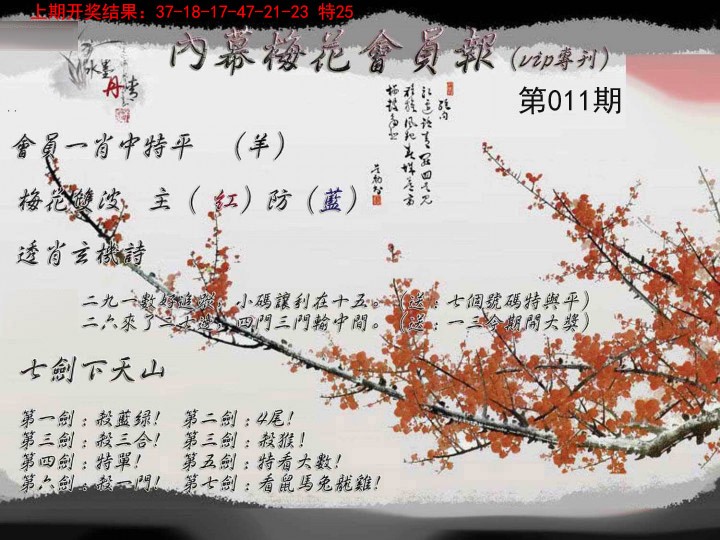 上期开奖结果：37-18-17-47-21-23 特25
內幕梅花會員報(vip專刊)
第011期
會員一肖中特平 （羊）
梅花雙波 主（紅）防（藍）
透肖玄機詩
二九一數好追蹤，小碼讓利在十五。（送：七個號碼特與平）
四門三門輸中間。（送：一三今期開大獎）
七劍下天山
第一劍：殺藍绿！ 第二劍：4尾！
第三劍：殺三合！ 第三劍：殺猴！
第四劍：特單！ 第五劍：特看大數！
第六劍：殺一門！ 第七劍：看鼠馬兔龍雞！